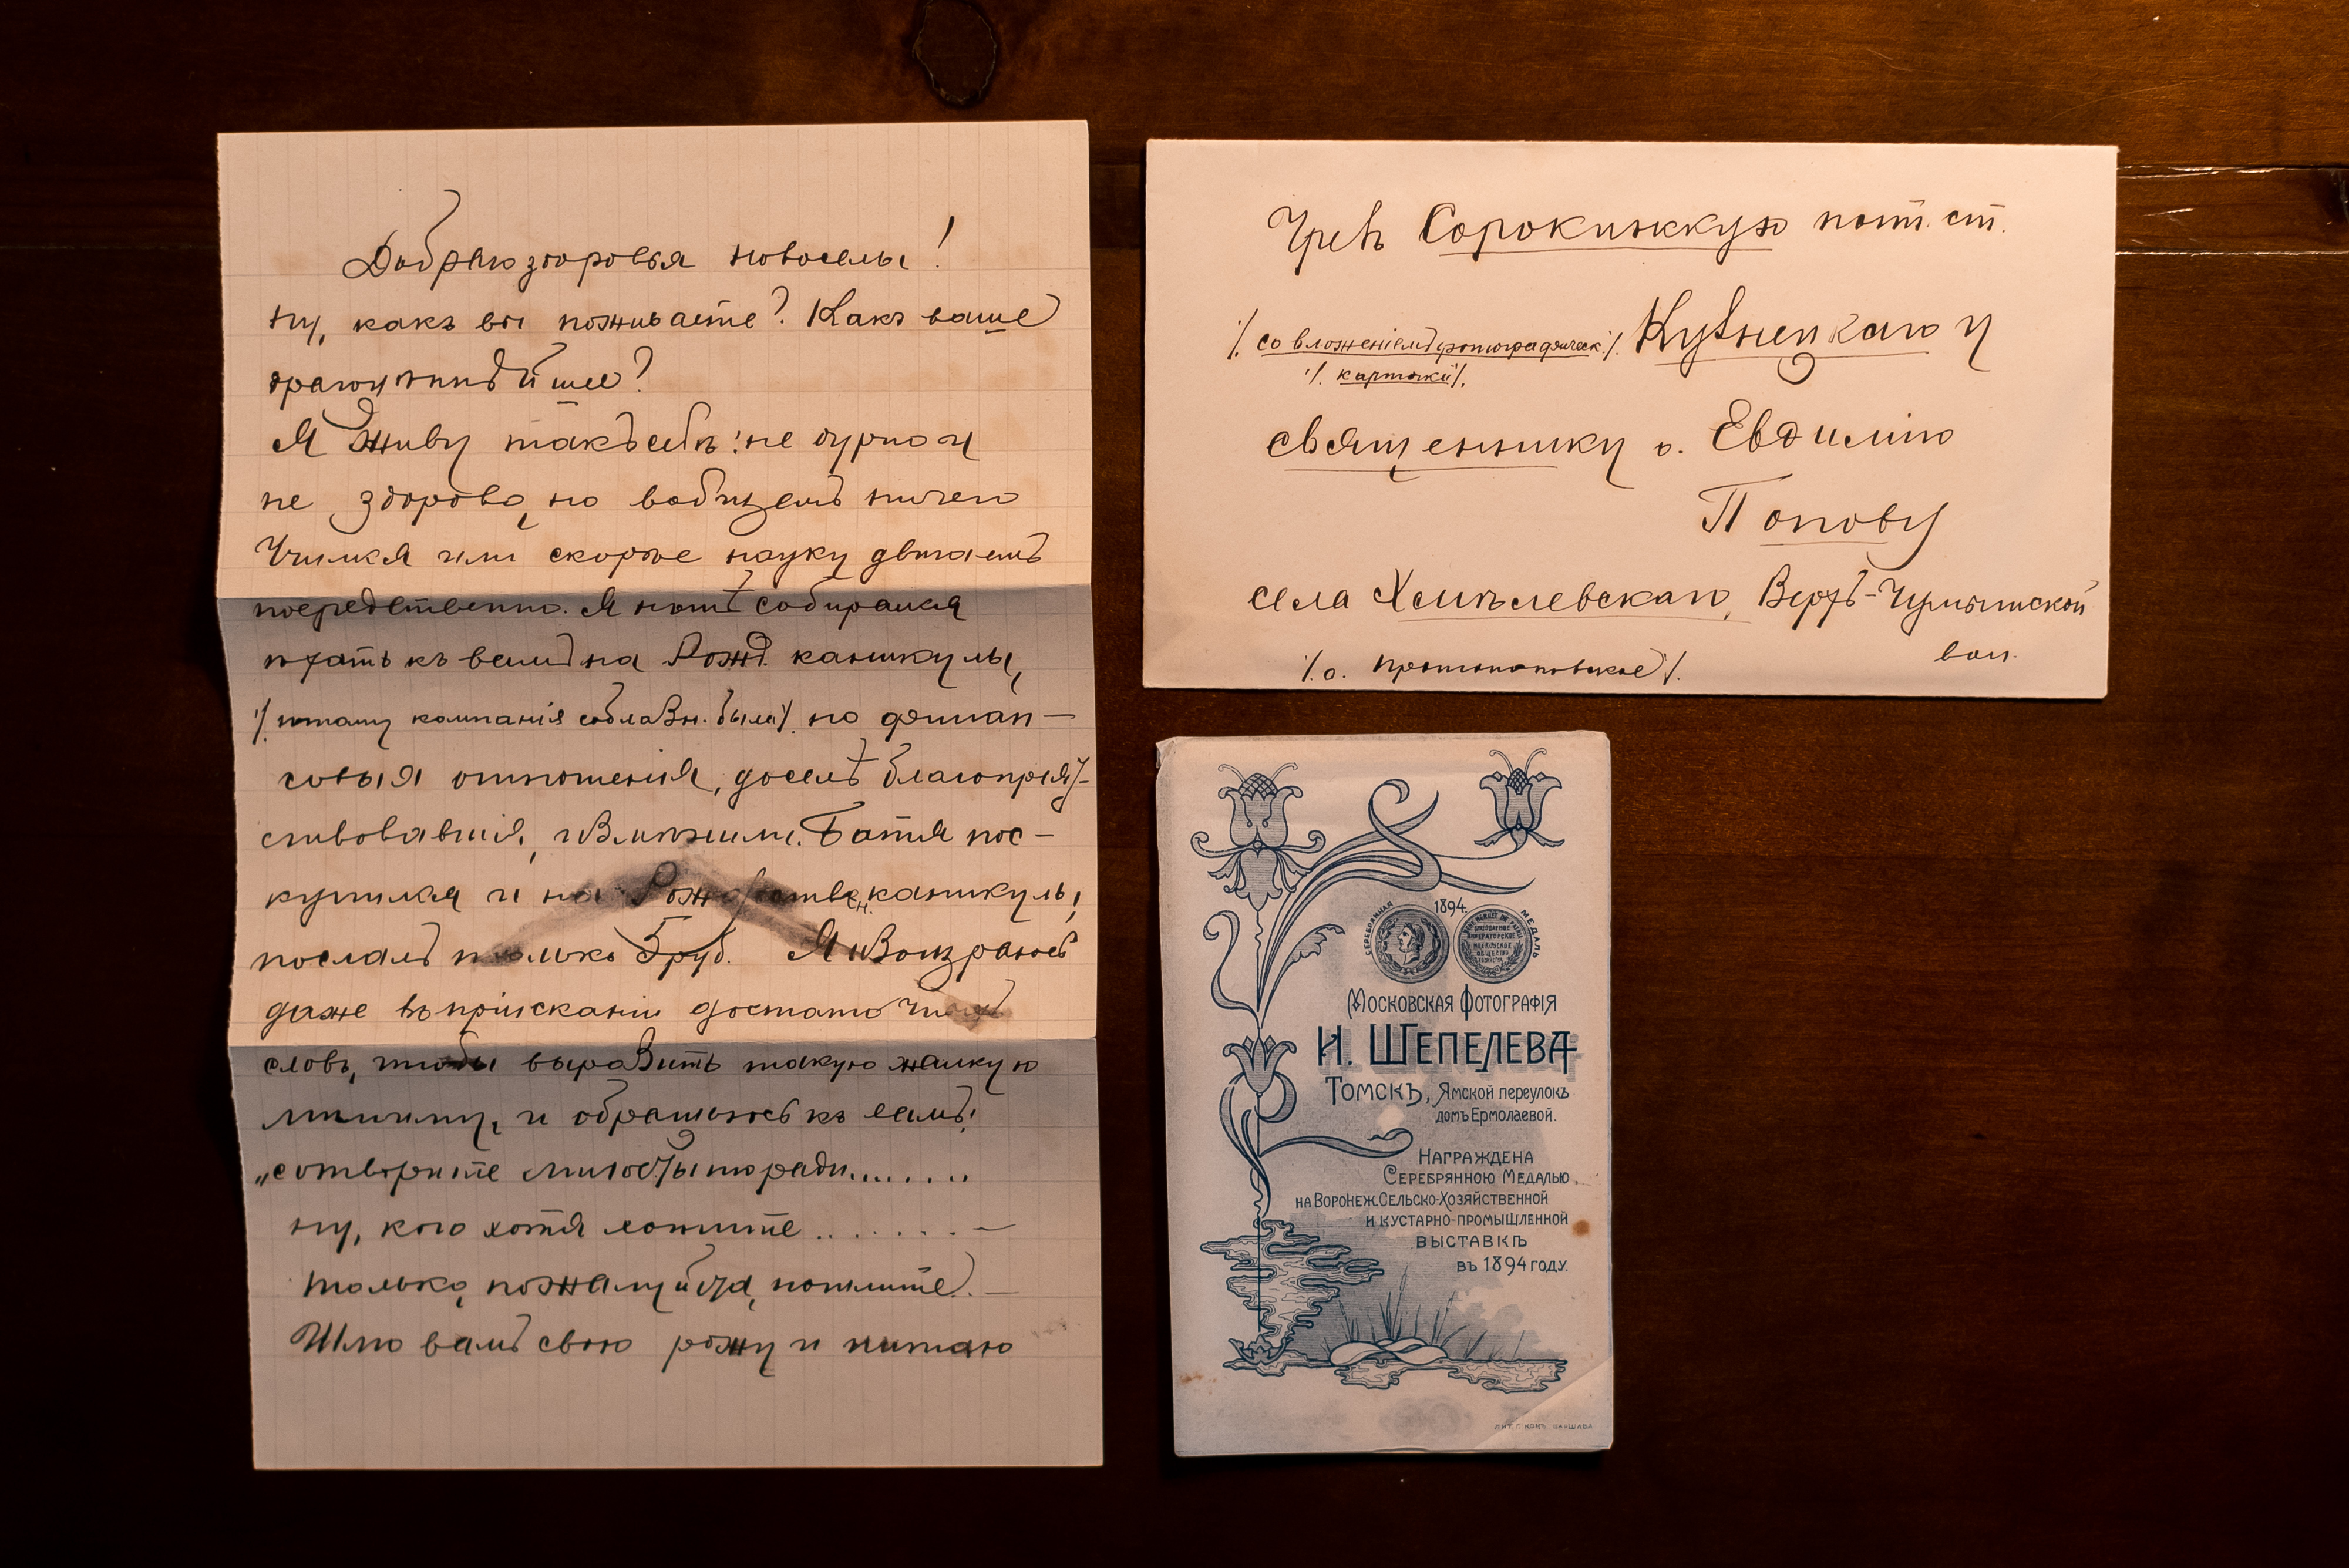 Добраго здоровья новоселы!
Ну, какъ вы поживаете? Какъ ваше
драгоцѣннѣйшее?
Я живу такъ себѣ: не дурно и
не здорово, но вобщемъ ничего
Учимся или скорѣе науку двигаемъ
посредственно. Я нонѣ собирался
ѣхать къ вамъ на Рожд. каникулы,
/. потому компанія соблазн. была/. но финан-
совыя отношенія, доселѣ благопріят-
ствовавшія, измѣнили. Батя пос-
купился и на Рождественс. каникулы
послалъ только 5 руб. Я изощряюсь
даже въ пріисканіи достаточныхъ
словъ, чтобы выразить такую жалкую
мѣстину, и обращаюсь къ вамъ:
„сотворите милость ради.......
ну, кого хотя хотите ....... —
только, пожалуйста, пошлите. —
Шлю вамъ свою рожу и питаю
Чрезъ Сорокинскую почт. ст.
Кузнецкаго у
/. со вложеніемъ фотографическ./.
/. карточки/.
священнику о. Евдимію
Попову
села Хмѣлевскаго, Верхъ-Чумышской
вол.
/. о. Протопоповское/.
1894.
СЕРЕБРЯННАЯ МЕДАЛЬ
МОСКОВСКАЯ ФОТОГРАФІЯ
Н. ШЕПЕЛЕВА
ТОМСКЪ, ЯМСКОЙ ПЕРЕУЛОКЪ
ДОМЪ ЕРМОЛАЕВОЙ.
НАГРАЖДЕНА
СЕРЕБРЯННОЮ МЕДАЛЬЮ
НА ВОРОНЕЖ. СЕЛЬСКО-ХОЗЯЙСТВЕННОЙ
И КУСТАРНО-ПРОМЫШЛЕННОЙ
ВЫСТАВКѢ
ВЪ 1894 ГОДУ.